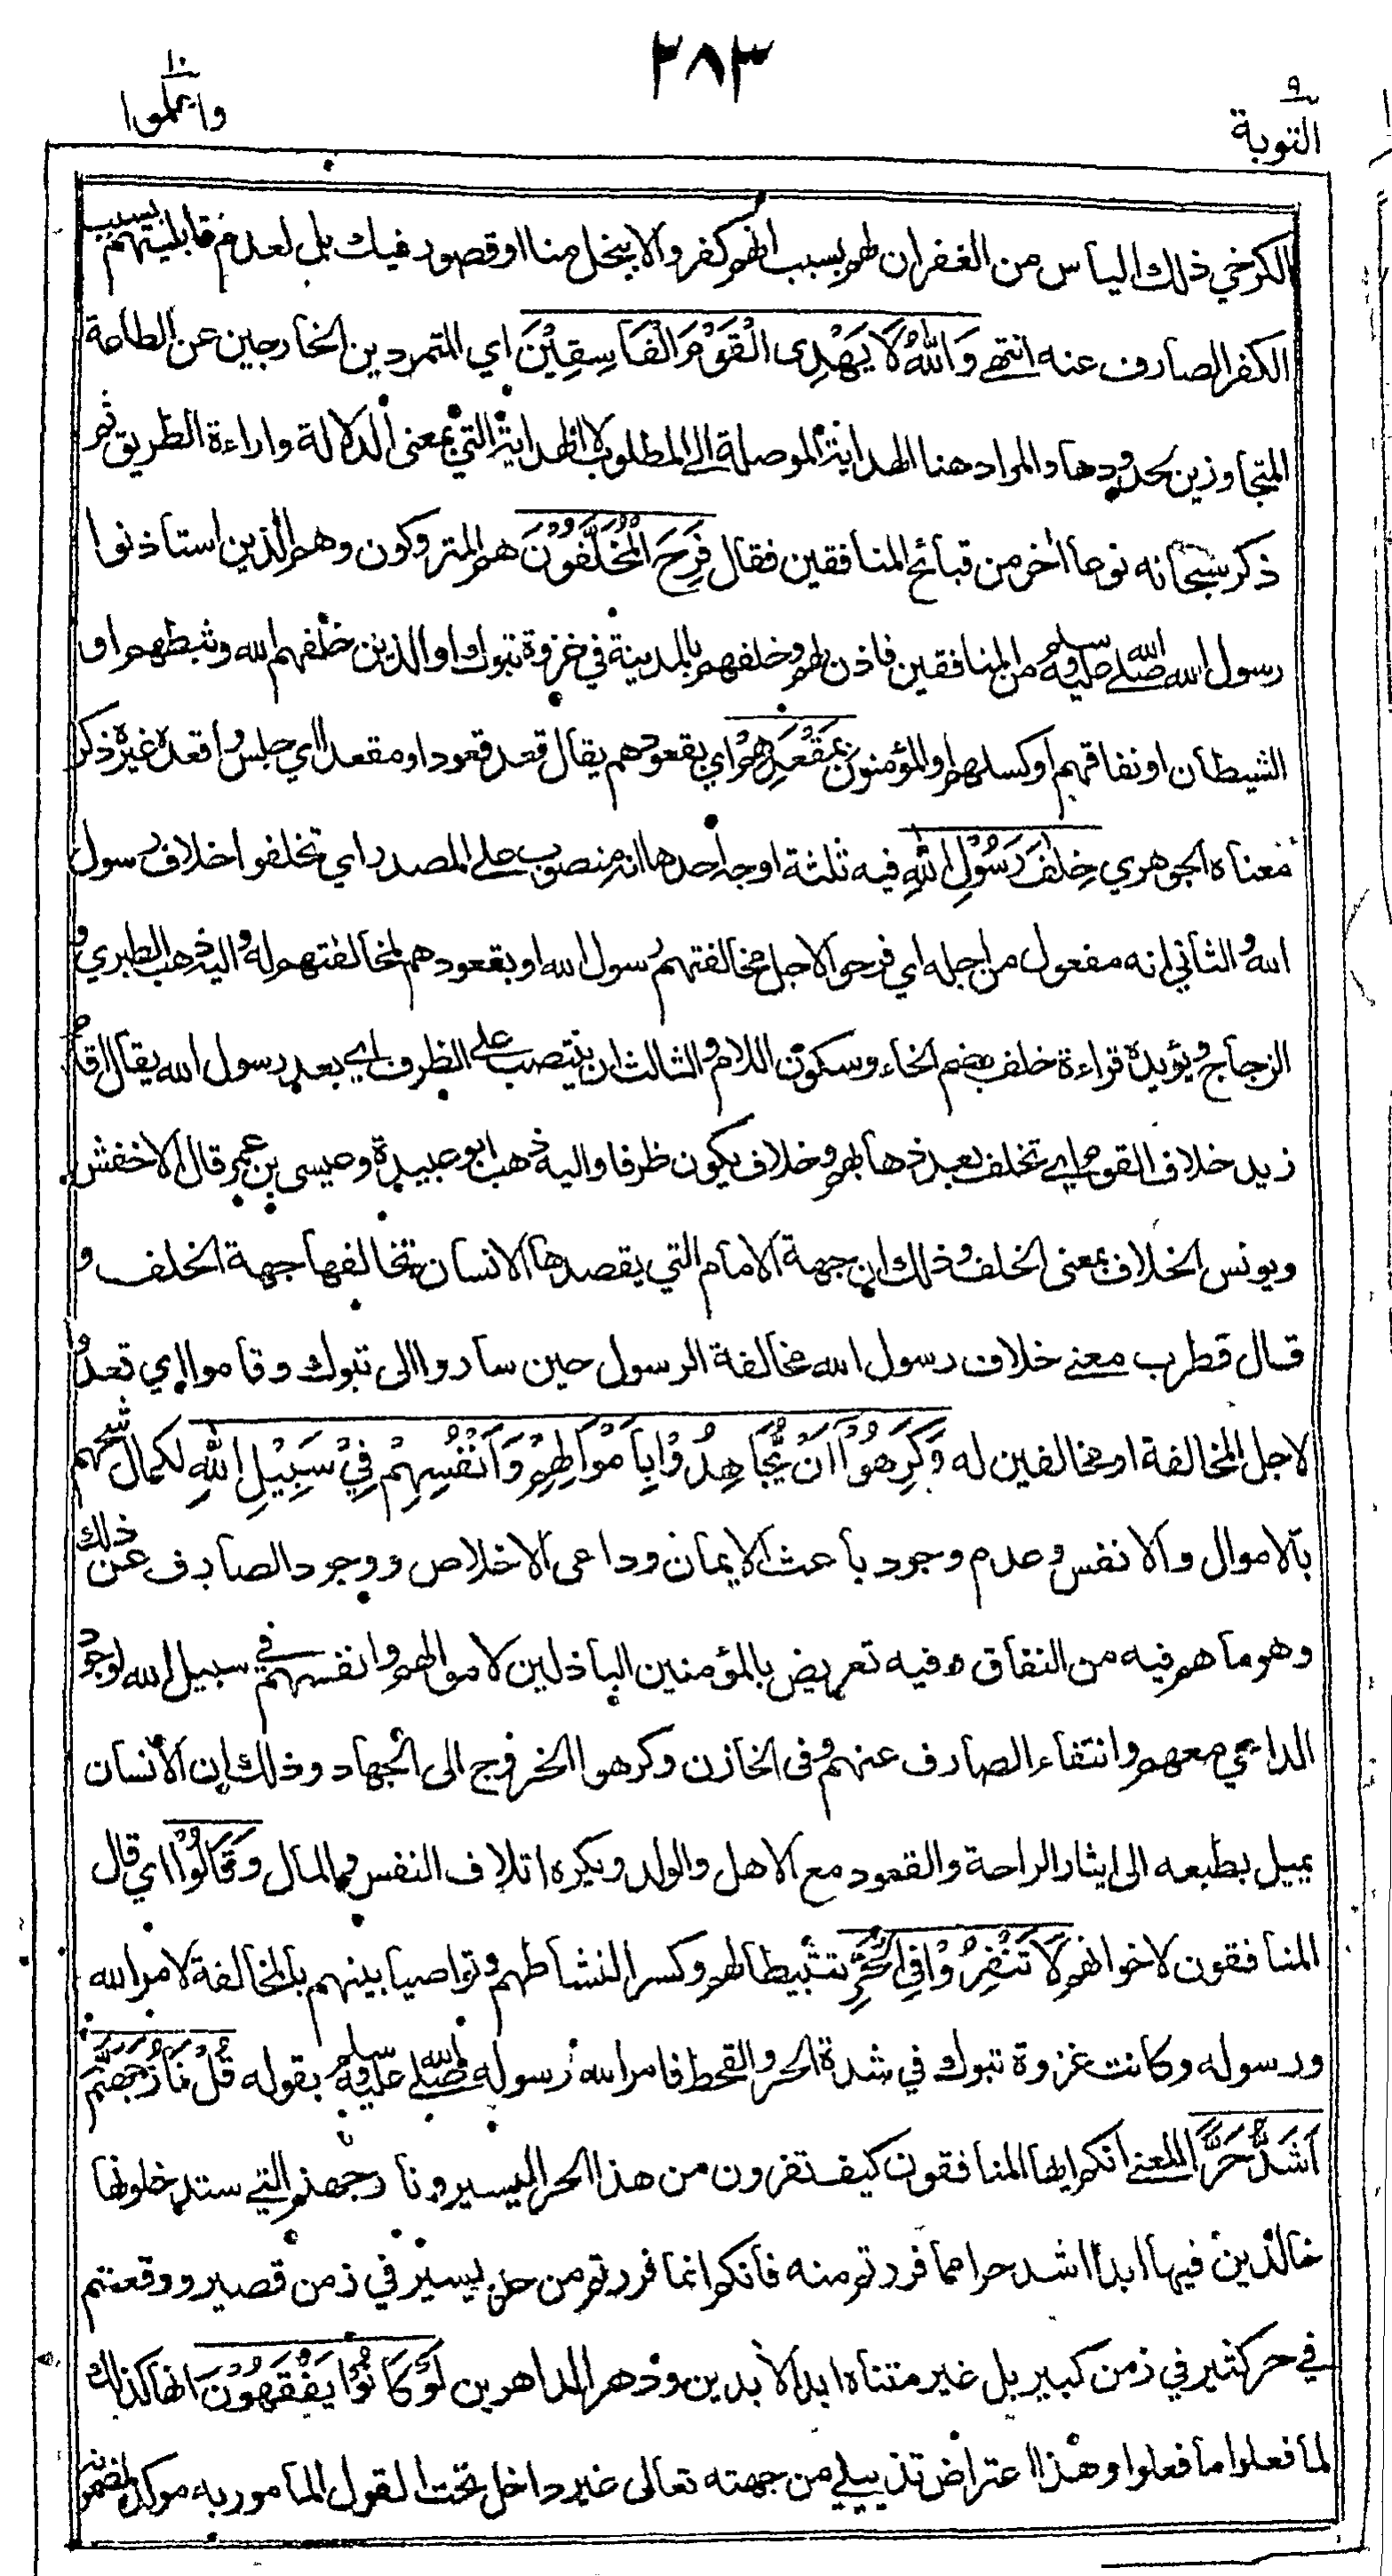 ٢٨٣
التوبة ٩
واعلموا ١٠
الكرخي ذلك الياس من الغفران لهم بسبب انهم كفروا لا ببخل منا او قصور فيك بل لعدم قابليتهم بسبب
الكفر الصارف عنه انتهى وَاللّٰهُ لَا يَهْدِى الْقَوْمَ الْفَاسِقِيْنَ اي المتمردين الخارجين عن الطاعة
المتجاوزين لحدودها والمراد هنا الهداية الموصلة الى المطلوب لا الهداية التي بمعنى الدلالة واراءة الطريق ثم
ذكر سبحانه نوعا اخر من قبائح المنافقين فقال فَرِحَ الْمُخَلَّفُوْنَ هم المتروكون وهم الذين استاذنوا
رسول الله صلى الله عليه وسلم من المنافقين فاذن لهم وخلفهم بالمدينة في غزوة تبوك او الذين خلفهم الله وثبطهم او
الشيطان او نفاقهم او كسلهم او المؤمنون بِمَقْعَدِهِمْ اي بقعودهم يقال قعد قعودا ومقعدا اي جلس واقعده غيره ذكر
معناه الجوهري خِلٰفَ رَسُوْلِ اللّٰهِ فيه ثلثة اوجه احدها انه منصوب على المصدر اي تخلفوا خلاف رسول
الله والثاني انه مفعول من اجله اي فرحوا لاجل مخالفتهم رسول الله او بقعودهم لمخالفتهم له واليه ذهب الطبري و
الزجاج ويؤيده قراءة خلف بضم الخاء وسكون اللام والثالث ان ينتصب على الظرف اي بعد رسول الله يقال اقام
زيد خلاف القوم اي تخلف بعد ذهابهم وخلاف يكون ظرفا واليه ذهب ابو عبيدة وعيسى بن عمر وقال الاخفش
ويونس الخلاف بمعنى الخلف وذلك ان جهة الامام التي يقصدها الانسان تخالفها جهة الخلف و
قال قطرب معنى خلاف رسول الله مخالفة الرسول حين ساروا الى تبوك وقاموا اي قعدوا
لاجل المخالفة او مخالفين له وَكَرِهُوْا اَنْ يُّجَاهِدُوْا بِاَمْوَالِهِمْ وَاَنْفُسِهِمْ فِيْ سَبِيْلِ اللّٰهِ لكمال شحهم
بالاموال والانفس وعدم وجود باعث الايمان وداعى الاخلاص ووجود الصارف عن ذلك
وهو ما هم فيه من النفاق وفيه تعريض بالمؤمنين الباذلين لاموالهم وانفسهم في سبيل الله لوجود
الداعي معهم وانتفاء الصارف عنهم وفى الخازن وكرهوا الخروج الى الجهاد وذلك ان الانسان
يميل بطبعه الى ايثار الراحة والقعود مع الاهل والولد ويكره اتلاف النفس والمال وَقَالُوْا اي قال
المنافقون لاخوانهم لَا تَنْفِرُوْا فِى الْحَرِّ تثبيطا لهم وكسرا لنشاطهم وتواصيا بينهم بالمخالفة لامر الله
ورسوله وكانت غزوة تبوك في شدة الحر والقحط فامر الله رسوله صلى الله عليه وسلم بقوله قُلْ نَارُ جَهَنَّمَ
اَشَدُّ حَرًّا المعنى انكم ايها المنافقون كيف تفرون من هذا الحر اليسير ونار جهنم التي ستدخلونها
خالدين فيها ابدا اشد حرا مما فررتم منه فانكم انما فررتم من حر يسير في زمن قصير ووقعتم
في حر كثير في زمن كبير بل غير متناه ابد الابدين ودهر الداهرين لَوْ كَانُوْا يَفْقَهُوْنَ انها كذلك
لما فعلوا ما فعلوا وهذا اعتراض تذييلي من جهته تعالى غير داخل تحت القول المأمور به موكد لمضمونه